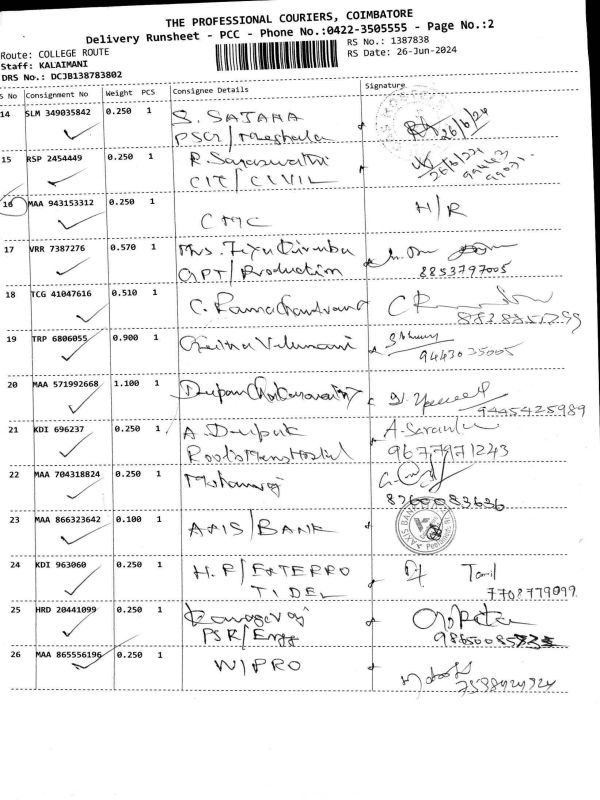 THE PROFESSIONAL COURIERS, COIMBATORE
Delivery Runsheet - PCC - Phone No.:0422-3505555 - Page No.:2
Route: COLLEGE ROUTE
RS No.: 1387838
Staff: KALAIMANI
RS Date: 26-Jun-2024
DRS No.: DCJB138783802
S No Consignment No Weight PCS Consignee Details Signature
14 SLM 349035842 0.250 1 S. SATARA
PSG/ 26/6/24
15 RSP 2454449 0.250 1 R. Saraswathi
CIT/CIVIL 26/6/24
16 MAA 943153312 0.250 1 CMC H/R
17 VRR 7387276 0.570 1 Mrs.
GPT/Production 8853797005
18 TCG 41047616 0.510 1 C. Ramachandran
19 TRP 6806055 0.900 1
9443035005
20 MAA 571992668 1.100 1
9445425989
21 KDI 696237 0.250 1 A. Deepak
Roots Mens Hostel 9677971243
22 MAA 704318824 0.250 1 Mohanraj
8760083636
23 MAA 866323642 0.100 1 AXIS/BANK AXIS BANK
24 KDI 963060 0.250 1 H.P/ENTERPRO Tamil
TIDEL 7708779099
25 HRD 20441099 0.250 1 Kanagaraj
PSR/Engg
26 MAA 865556196 0.250 1 WIPRO